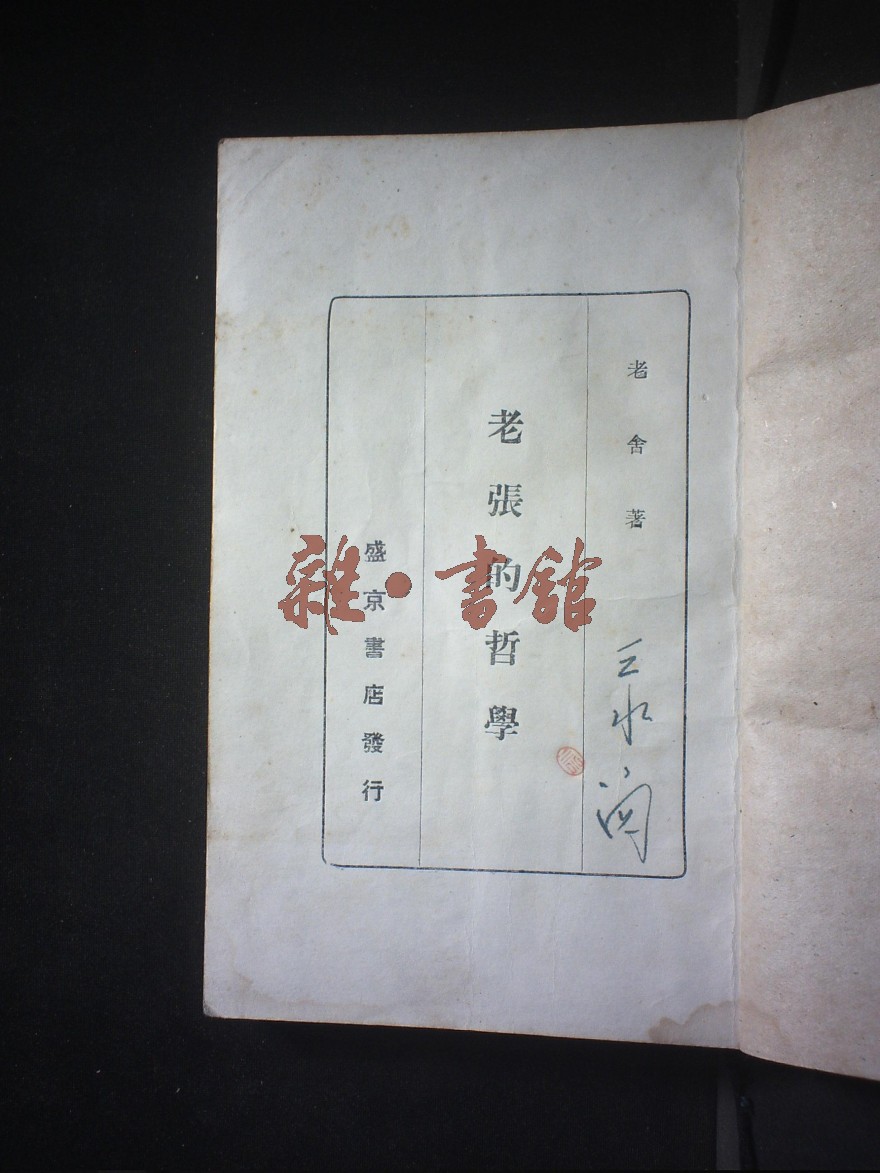 老舍著
老張的哲學
盛京書店發行
雜·書館